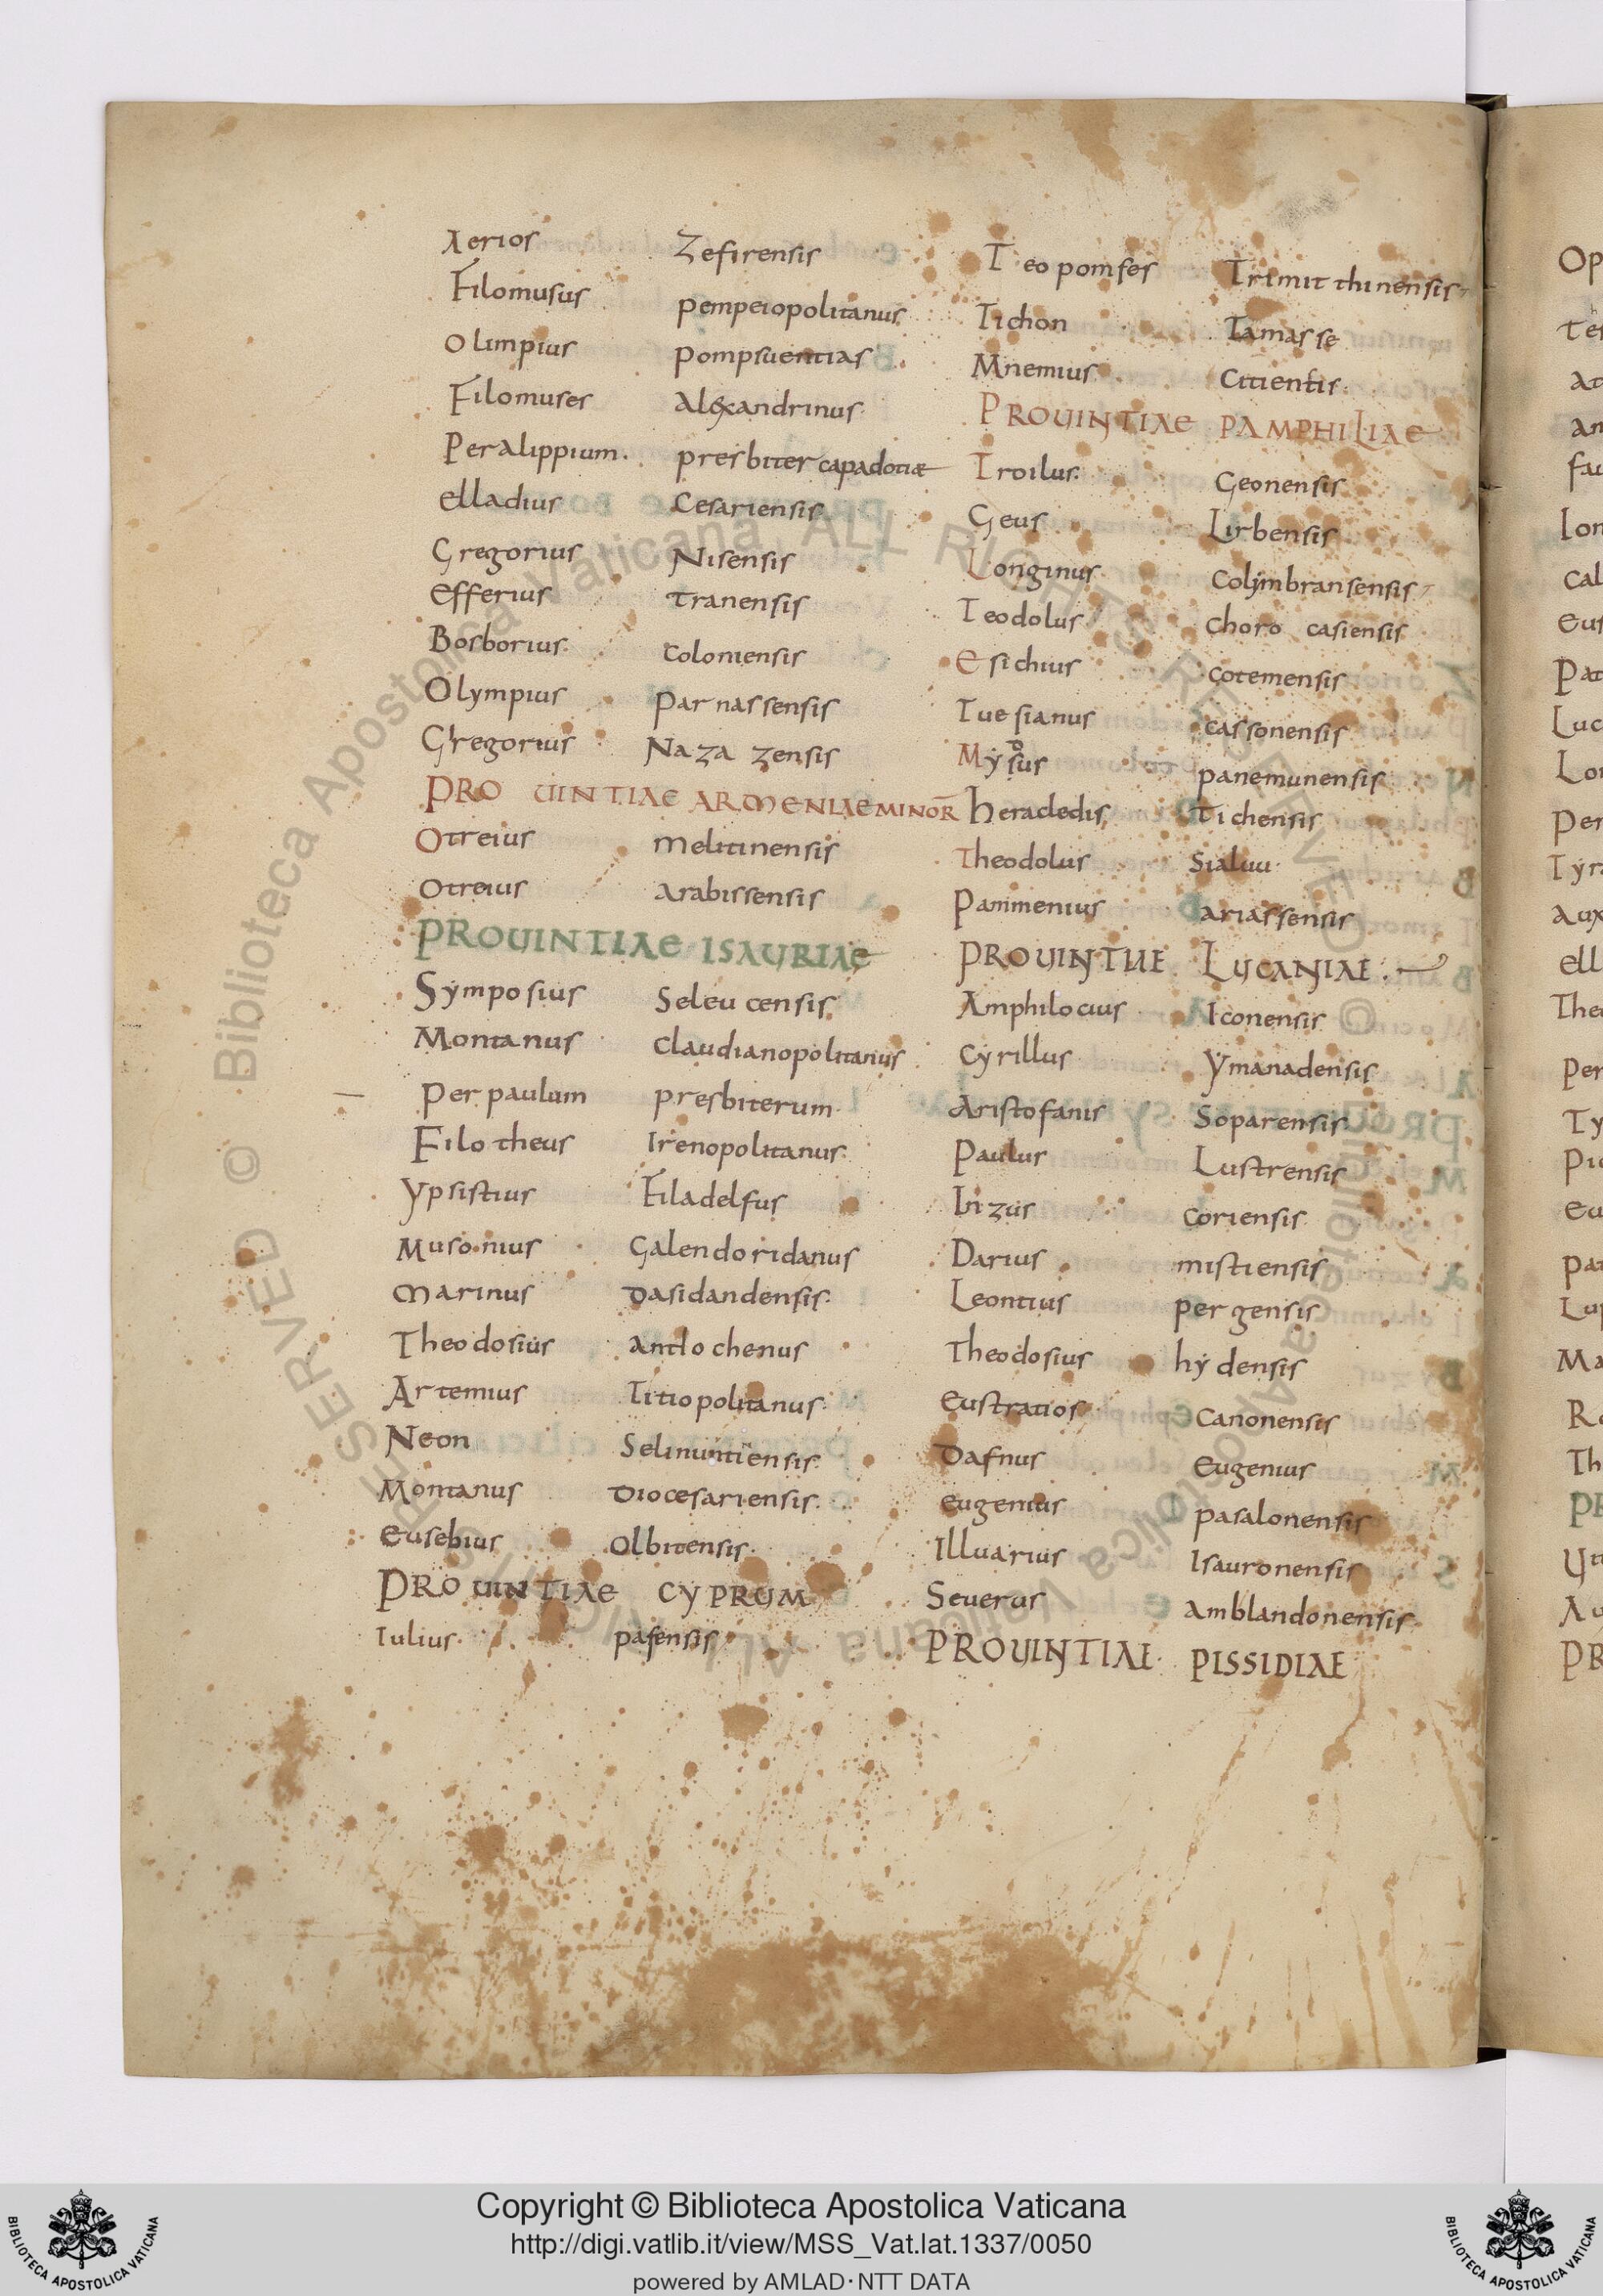 Aerios Zefirensis
Filomusus pempeiopolitanus
Olimpius pompsuentias
Filomuses alexandrinus
Peralippium. presbiter capadotiae
elladius Cesariensis
Gregorius Nisensis
efferius tranensis
Bosborius coloniensis
Olympius parnassensis
Gregorius Naza zensis
PRO UINTIAE ARMENIAE MINOR̄
Otreius melitinensis
Otreius arabissensis
PROUINTIAE ISAURIAE
Symposius Seleu censis
Montanus claudianopolitanus
Per paulum presbiterum
Filo theus Irenopolitanus
Ypsistius Filadelfus
Musonius Galendoridanus
Marinus Dasidandensis
Theodosius antiochenus
Artemius Titiopolitanus
Neon Selinuntiensis
Montanus Diocesariensis
eusebius Olbitensis
PROUINTIAE CYPRUM
Iulius pafensis
Teo pomfes Trimit thinensis
Tichon Tamasse
Mnemius Citientis
PROUINTIAE PAMPHILIAE
Troilus Geonensis
Geus Lirbensis
Longinus colymbransensis
Teodolus choro casiensis
Esichius cotemensis
Tuesianus cassonensis
Mysus panemunensis
heracledis Tichensis
Theodolus Sialuu
Panimenius ariassensis
PROUINTIAE LYCANIAE
Amphilocius Iconensis
Cyrillus ymanadensis
Aristofanis Soparensis
Paulus Lustrensis
Inzus coriensis
Darius mistiensis
Leontius pergensis
Theodosius hydensis
eustratios Canonensis
Dafnus eugenius
eugenius pasalonensis
Illuarius Isauronensis
Seuerus amblandonensis
PROUINTIAE PISSIDIAE
Copyright © Biblioteca Apostolica Vaticana
http://digi.vatlib.it/view/MSS_Vat.lat.1337/0050
powered by AMLAD·NTT DATA